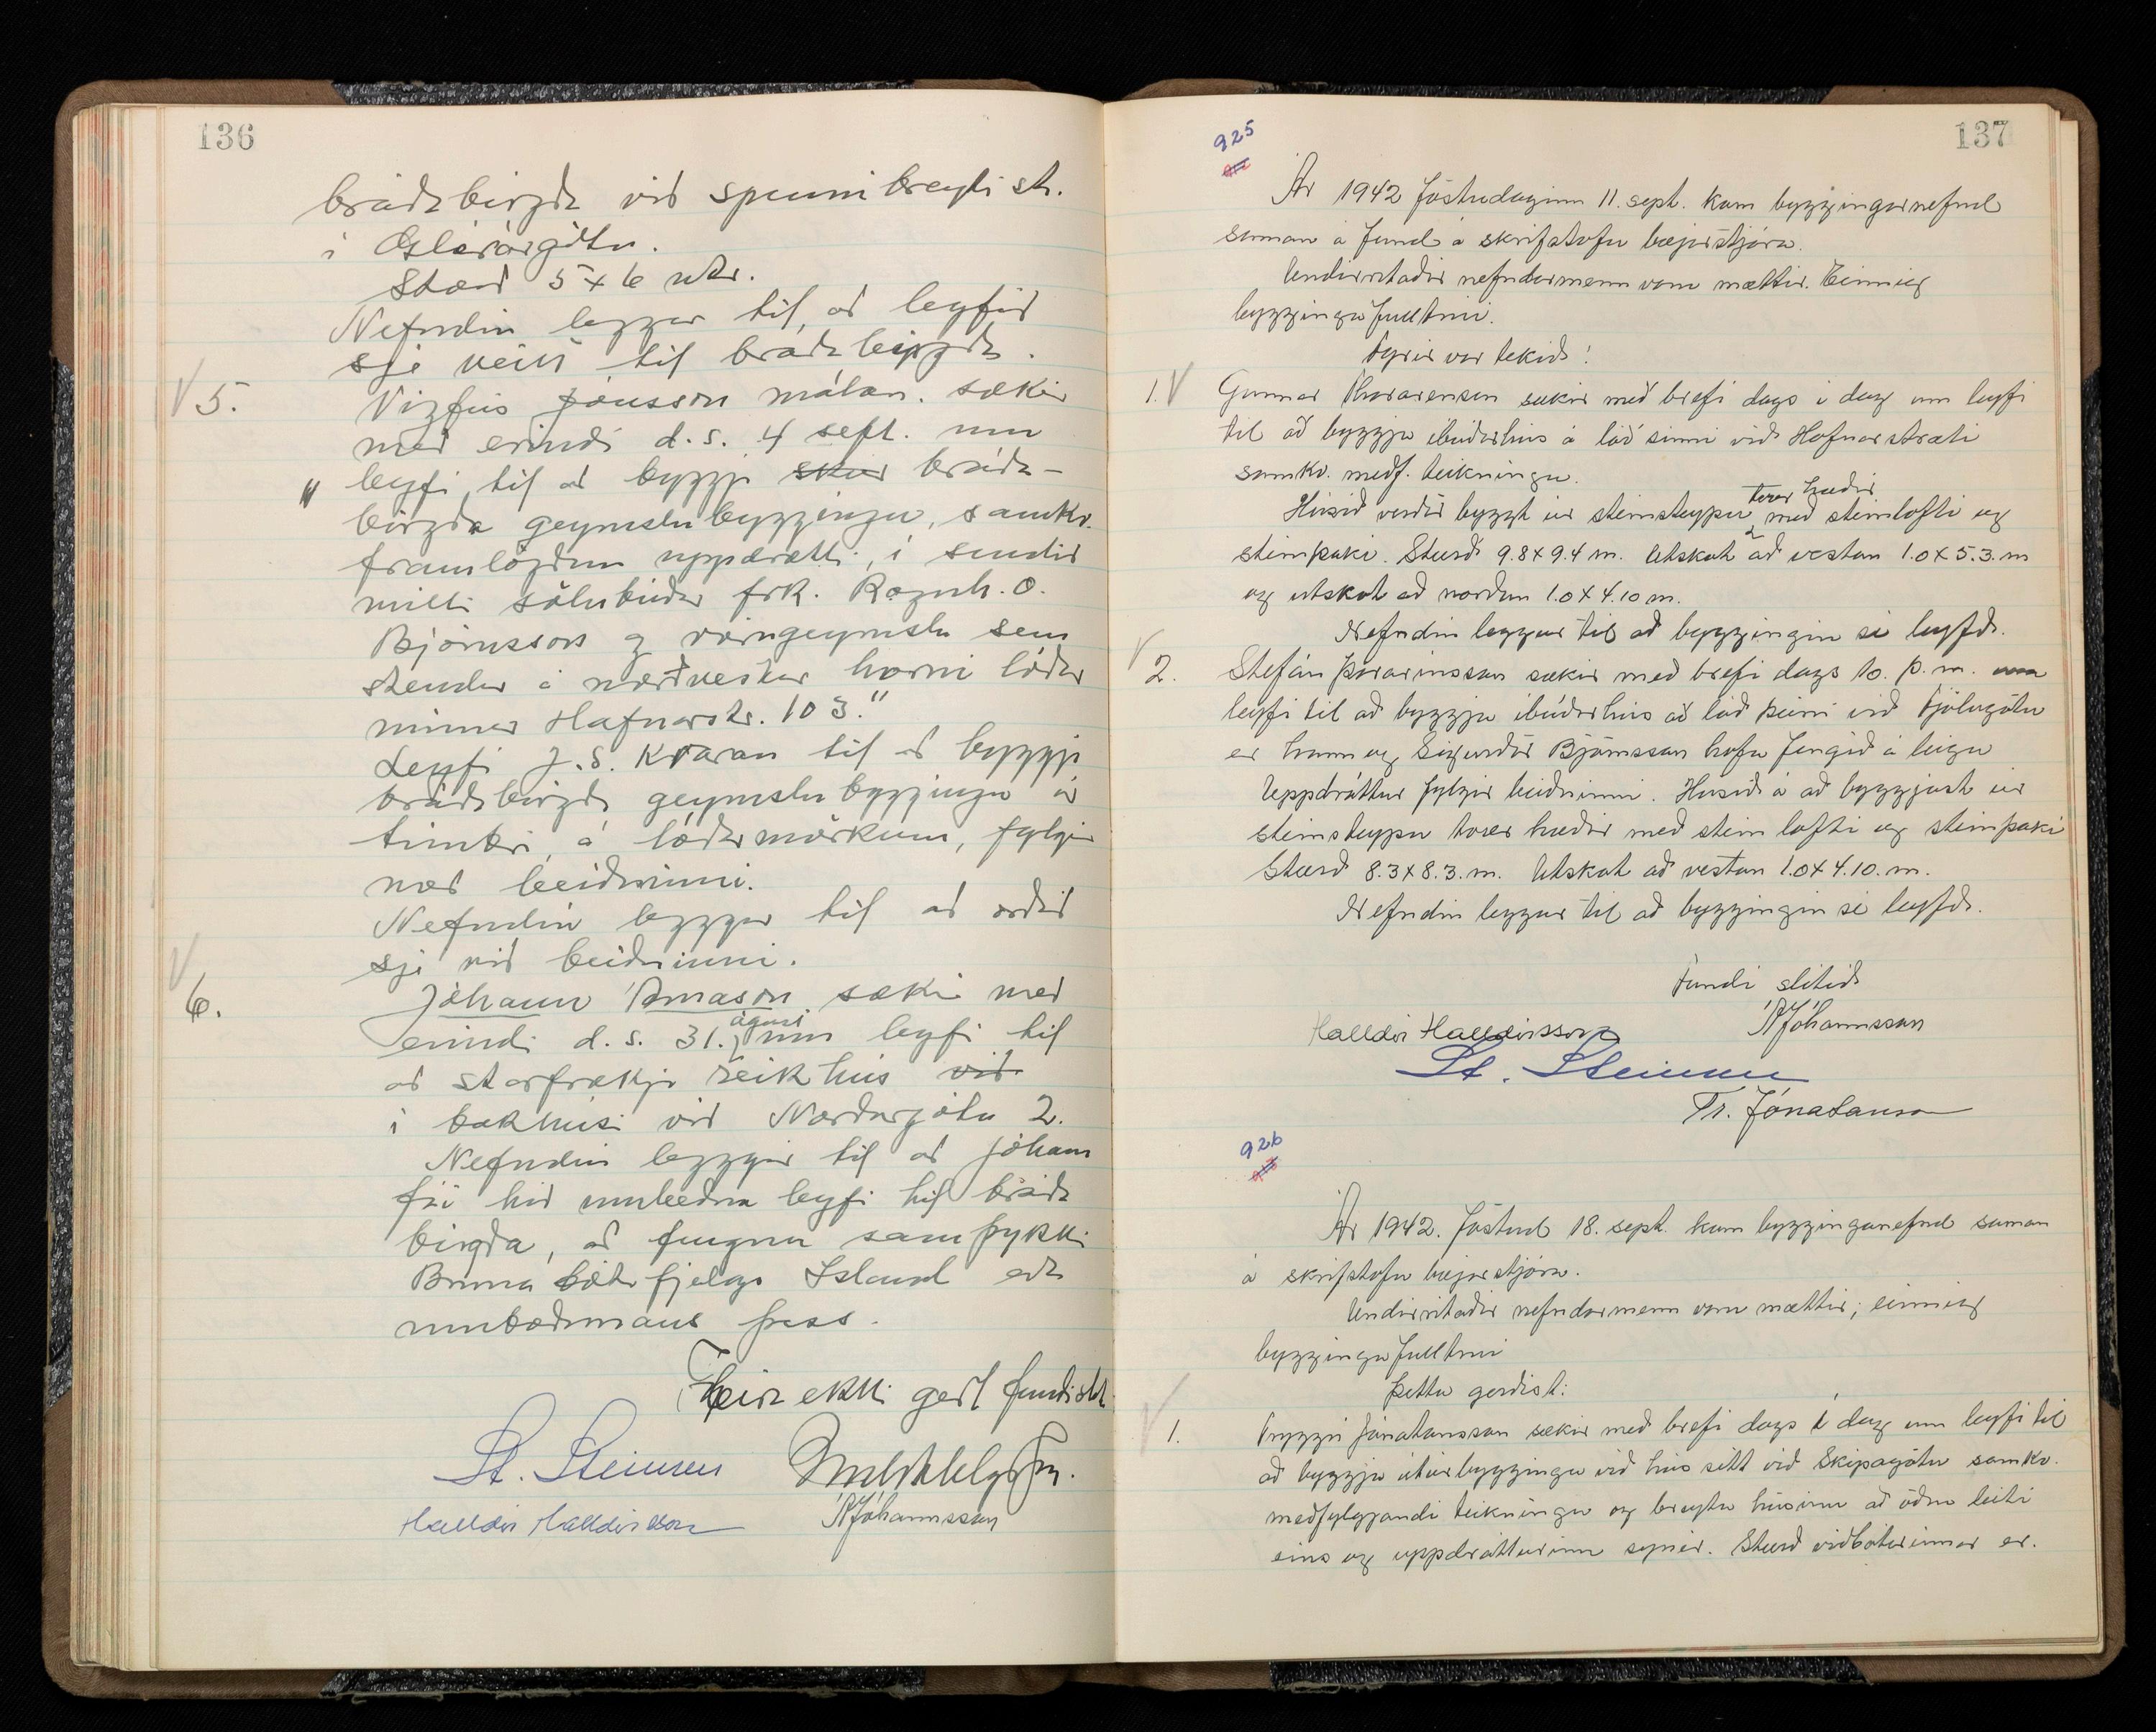 136
bráðabirgða við spennibreytist.
í Glerárgötu.
Stærð 5 x 6 mtr.
Nefndin leggur til, að leyfið
sje veitt til bráðabirgða.
V 5.
Vigfús Jónsson málam. sækir
með erindi d.s. 4 sept. um
„ leyfi til að byggja skúr bráða-
birgða geymslubyggingu, samkv.
framlögðum uppdrætti, í sundið
milli sölubúðar frk. Ragnh. O.
Björnsson og vörugeymslu sem
stendur á norðvestur horni lóðar
minnar Hafnarstr. 103."
Leyfi J.S. Kvaran til að byggja
bráðabirgða geymslubyggingu úr
timbri, á lóðarmörkum, fylgir
með beiðninni.
Nefndin leggur til að orðið
sje við beiðninni.
V 6.
Jóhann Árnason sækir með
ágúst
erindi d.s. 31. um leyfi til
að starfrækja reikhús við
í bakhúsi við Norðurgötu 2.
Nefndin leggur til að Jóhann
fái hið umbeðna leyfi til bráða
birgða, að fengnu samþykki
Brunabótafjelags Island eða
umboðsmans þess.
Fleira ekki gert fundi slit
St. Steinsen
Halldór Halldórsson
ÁJóhannsson
137
925
Ár 1942 föstudaginn 11. sept. kom byggingarnefnd
saman á fund á skrifstofu bæjarstjóra.
Undirritaðir nefndarmenn voru mættir. Einnig
byggingafulltrúi.
Fyrir var tekið:
1. V Gunnar Thorarensen sækir með brefi dags í dag um leyfi
til að byggja íbúðarhús á lóð sinni við Hafnarstræti
samkv. meðf. teikningu.
tvær hæðir
Húsið verður byggt úr steinsteypu með steinlofti og
steinþaki. Stærð 9.8 x 9.4 m. Utskot að vestan 1.0 x 5.3. m
og utskot að norðan 1.0 x 4.10 m.
Nefndin leggur til að byggingin sé leyfð.
V 2. Stefán Þórarinsson sækir með brefi dags 10. þ.m. um
leyfi til að byggja íbúðarhús að lóð þeirri við Fjólugötu
er hann og Sigurður Björnsson hafa fengið á leigu
Uppdráttur fylgir beiðninni. Húsið á að byggjast úr
steinsteypu tvær hæðir með stein lofti og steinþaki
Stærð 8.3 x 8.3. m. Utskot að vestan 1.0 x 4.10. m.
Nefndin leggur til að byggingin sé leyfð.
Fundi slitið
Halldór Halldórsson
ÁJóhannsson
St. Steinsen
Tr. Jónatansson
926
Ár 1942. föstud 18. sept. kom bygginganefnd saman
á skrifstofu bæjarstjóra.
Undirritaðir nefndarmenn voru mættir; einnig
byggingafulltrúi
Þetta gerðist:
V 1. Tryggvi Jónatansson sækir með brefi dags í dag um leyfi til
að byggja útúrbyggingu við hús sitt við Skipagötu samkv.
meðfylgjandi teikningu og breyta húsinu að öðru leiti
eins og uppdrátturinn synir. Stærð viðbótarinnar er.